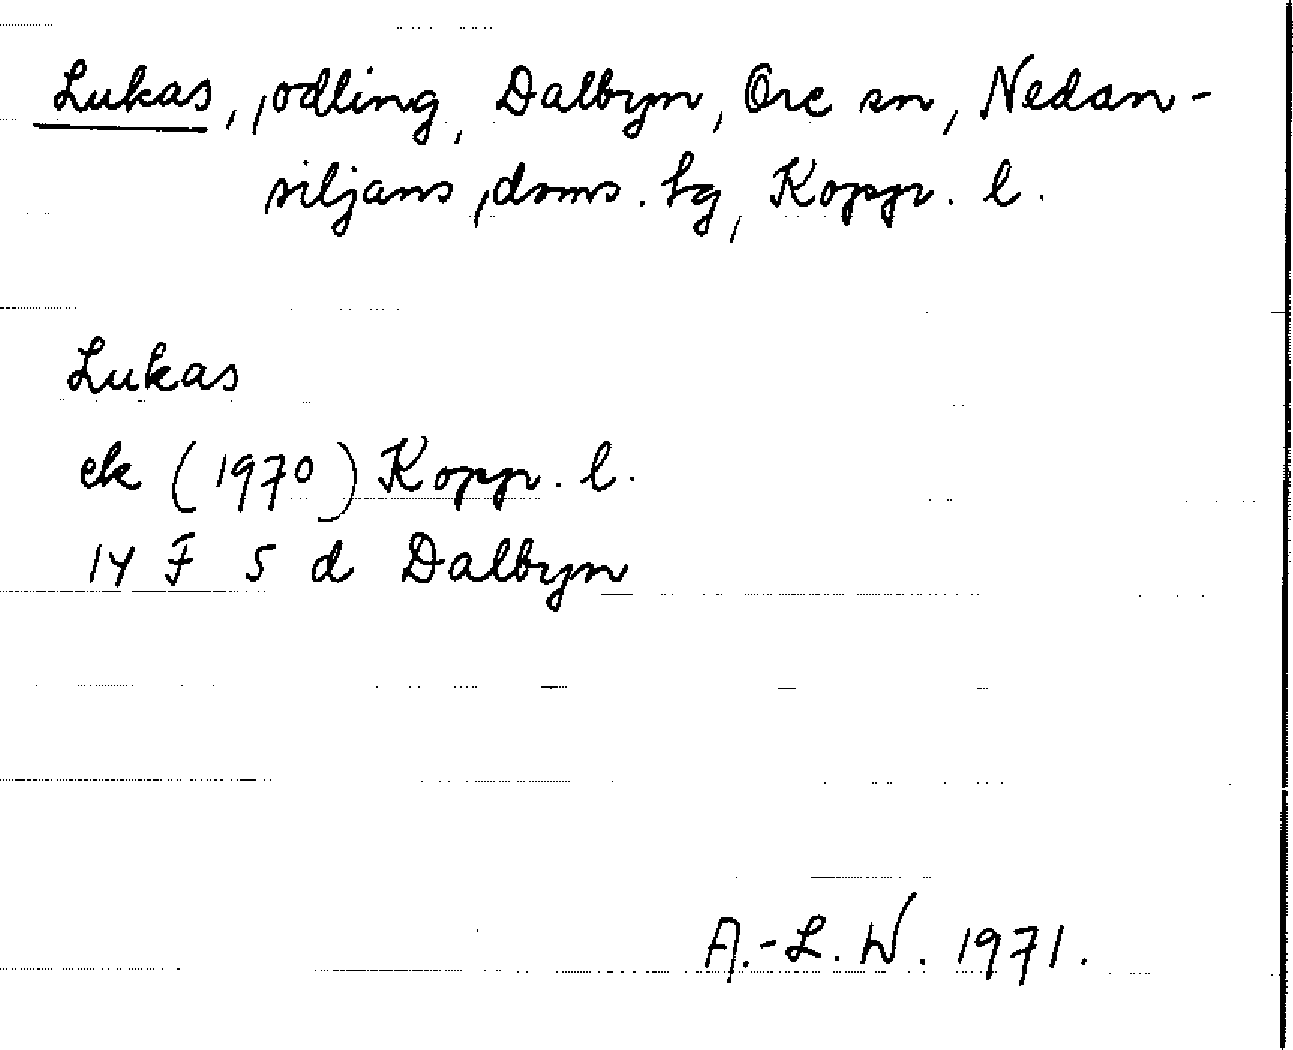 Lukas, odling, Dalbyn, Ore sn, Nedan-
siljans doms. hg, Koppr. l.
Lukas
ek (1970) Koppr. l.
14 F 5 d Dalbyn
A.-L. W. 1971.